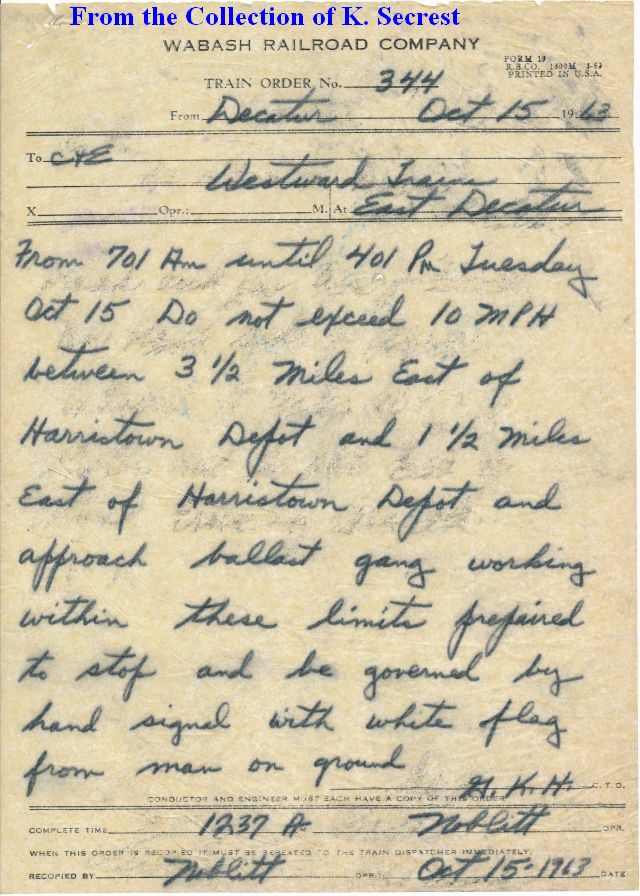 From the Collection of K. Secrest
WABASH RAILROAD COMPANY
FORM 19
R.B.CO. 1800M 4-62
PRINTED IN U.S.A.
TRAIN ORDER No. 344
From Decatur Oct 15 1963
To C&E
Westward Trains
X Opr.; M. At East Decatur
From 701 Am until 401 Pm Tuesday
Oct 15 Do not exceed 10 MPH
between 3 1/2 Miles East of
Harristown Depot and 1 1/2 Miles
East of Harristown Depot and
approach ballast gang working
within these limits prepaired
to stop and be governed by
hand signal with white flag
from man on ground
H. K. H. C.T.D.
CONDUCTOR AND ENGINEER MUST EACH HAVE A COPY OF THIS ORDER
COMPLETE TIME 1237 A Noblitt OPR.
WHEN THIS ORDER IS RECOPIED IT MUST BE REPEATED TO THE TRAIN DISPATCHER IMMEDIATELY.
RECOPIED BY Noblitt OPR.; Oct 15-1963 DATE